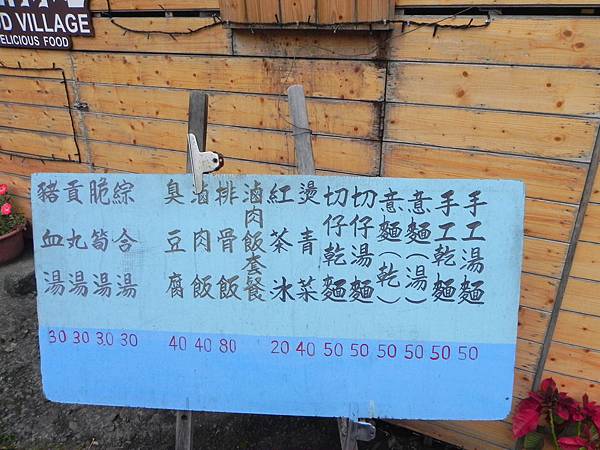 D VILLAGE
ELICIOUS FOOD
手工湯麵
手工乾麵
意麵(湯)
意麵(乾)
切仔湯麵
切仔乾麵
燙青菜
紅茶冰
滷肉飯套餐
排骨飯
滷肉飯
臭豆腐
綜合湯
脆筍湯
貢丸湯
豬血湯
30 30 30 30 40 40 80 20 40 50 50 50 50 50 50